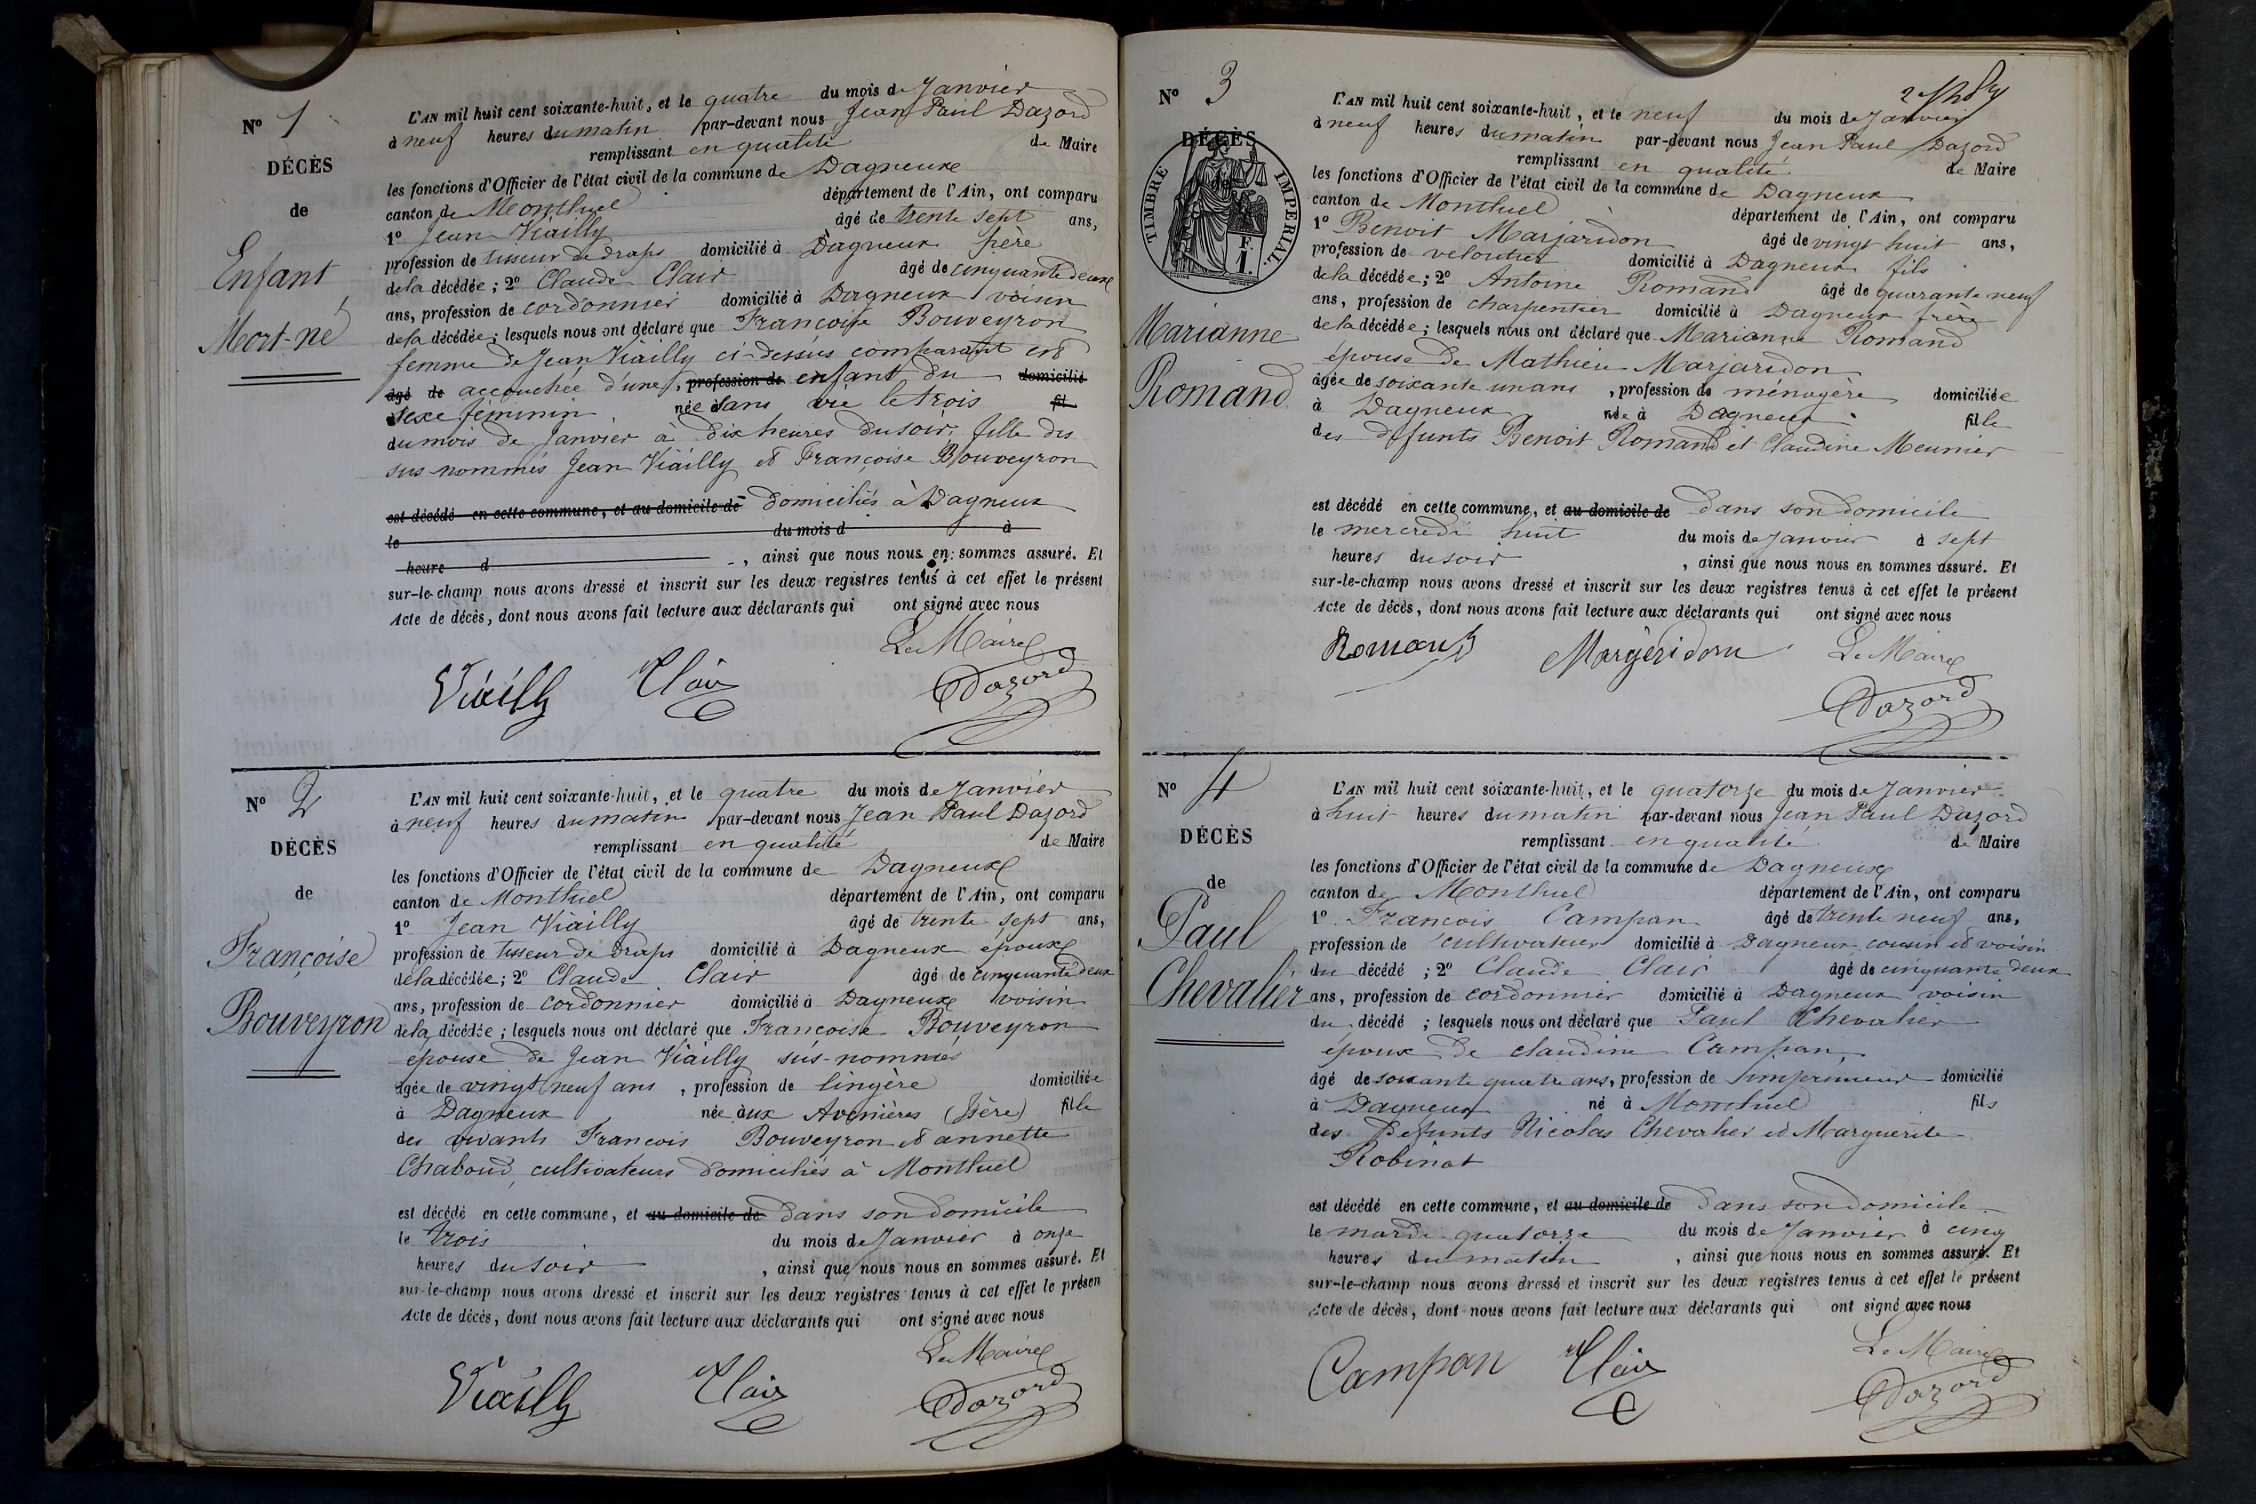 N° 1
DÉCÈS
de
Enfant
Mort-né
L'AN mil huit cent soixante-huit, et le quatre du mois de Janvier
à neuf heures du matin par-devant nous Jean Paul Dazord
remplissant en qualité de Maire
les fonctions d'Officier de l'état civil de la commune de Dagneux
canton de Montluel département de l'Ain, ont comparu
1° Jean Viailly âgé de trente sept ans,
profession de tisseur de draps domicilié à Dagneux père
de la décédée; 2° Claude Clair âgé de cinquante deux
ans, profession de cordonnier domicilié à Dagneux voisin
de la décédée; lesquels nous ont déclaré que Françoise Bouveyron
femme de Jean Viailly ci-dessus comparant est
âgé de accouchée d'une, profession de enfant du domicilié
sexe féminin née à sans vie le trois fil
du mois de Janvier à dix heures du soir, fille des
sus-nommés Jean Viailly et Françoise Bouveyron
est décédé en cette commune, et au domicile de domiciliés à Dagneux
le du mois d à
heure d , ainsi que nous nous en sommes assuré. Et
sur-le-champ nous avons dressé et inscrit sur les deux registres tenus à cet effet le présent
Acte de décès, dont nous avons fait lecture aux déclarants qui ont signé avec nous
Le Maire
Viailly Clair Dazord
N° 2
DÉCÈS
de
Françoise
Bouveyron
L'AN mil huit cent soixante-huit, et le quatre du mois de Janvier
à neuf heures du matin par-devant nous Jean Paul Dazord
remplissant en qualité de Maire
les fonctions d'Officier de l'état civil de la commune de Dagneux
canton de Montluel département de l'Ain, ont comparu
1° Jean Viailly âgé de trente sept ans,
profession de tisseur de draps domicilié à Dagneux époux
de la décédée; 2° Claude Clair âgé de cinquante deux
ans, profession de cordonnier domicilié à Dagneux voisin
de la décédée; lesquels nous ont déclaré que Françoise Bouveyron
épouse de Jean Viailly sus-nommés
âgée de vingt neuf ans, profession de lingère domiciliée
à Dagneux née aux Avenières (Isère) fille
des vivants François Bouveyron et annette
Chaboud, cultivateurs domiciliés à Montluel
est décédé en cette commune, et au domicile de dans son domicile
le trois du mois de Janvier à onze
heures du soir , ainsi que nous nous en sommes assuré. Et
sur-le-champ nous avons dressé et inscrit sur les deux registres tenus à cet effet le présen
Acte de décès, dont nous avons fait lecture aux déclarants qui ont signé avec nous
Le Maire
Viailly Clair Dazord
N° 3
DÉCÈS
de
TIMBRE IMPÉRIAL.
F.
1.
Marianne
Romand
L'AN mil huit cent soixante-huit, et le neuf du mois de Janvier
à neuf heures du matin par-devant nous Jean Paul Dazord
remplissant en qualité de Maire
les fonctions d'Officier de l'état civil de la commune de Dagneux
canton de Montluel département de l'Ain, ont comparu
1° Benoit Marjaridon âgé de vingt huit ans,
profession de veloutier domicilié à Dagneux fils
de la décédée; 2° Antoine Romand âgé de quarante neuf
ans, profession de charpentier domicilié à Dagneux frère
de la décédée; lesquels nous ont déclaré que Marianne Romand
épouse de Mathieu Marjaridon
âgée de soixante un ans, profession de ménagère domiciliée
à Dagneux née à Dagneux fille
des défunts Benoit Romand et Claudine Meunier
est décédé en cette commune, et au domicile de dans son domicile
le mercredi huit du mois de Janvier à sept
heures du soir , ainsi que nous nous en sommes assuré. Et
sur-le-champ nous avons dressé et inscrit sur les deux registres tenus à cet effet le présent
Acte de décès, dont nous avons fait lecture aux déclarants qui ont signé avec nous
Romand Margeridon Le Maire
Dazord
N° 4
DÉCÈS
de
Paul
Chevalier
L'AN mil huit cent soixante-huit, et le quatorze du mois de Janvier
à huit heures du matin par-devant nous Jean Paul Dazord
remplissant en qualité de Maire
les fonctions d'Officier de l'état civil de la commune de Dagneux
canton de Montluel département de l'Ain, ont comparu
1° François Campan âgé de trente neuf ans,
profession de cultivateur domicilié à Dagneux, cousin et voisin
du décédé; 2° Claude Clair âgé de cinquante deux
ans, profession de cordonnier domicilié à Dagneux voisin
du décédé; lesquels nous ont déclaré que Paul Chevalier
époux de claudine Campan,
âgé de soixante quatre ans, profession de imprimeur domicilié
à Dagneux né à Montluel fils
des défunts Nicolas Chevalier et Marguerite
Robinat
est décédé en cette commune, et au domicile de dans son domicile
le mardi quatorze du mois de Janvier à cinq
heures du matin , ainsi que nous nous en sommes assuré. Et
sur-le-champ nous avons dressé et inscrit sur les deux registres tenus à cet effet le présent
Acte de décès, dont nous avons fait lecture aux déclarants qui ont signé avec nous
Le Maire
Campan Clair Dazord